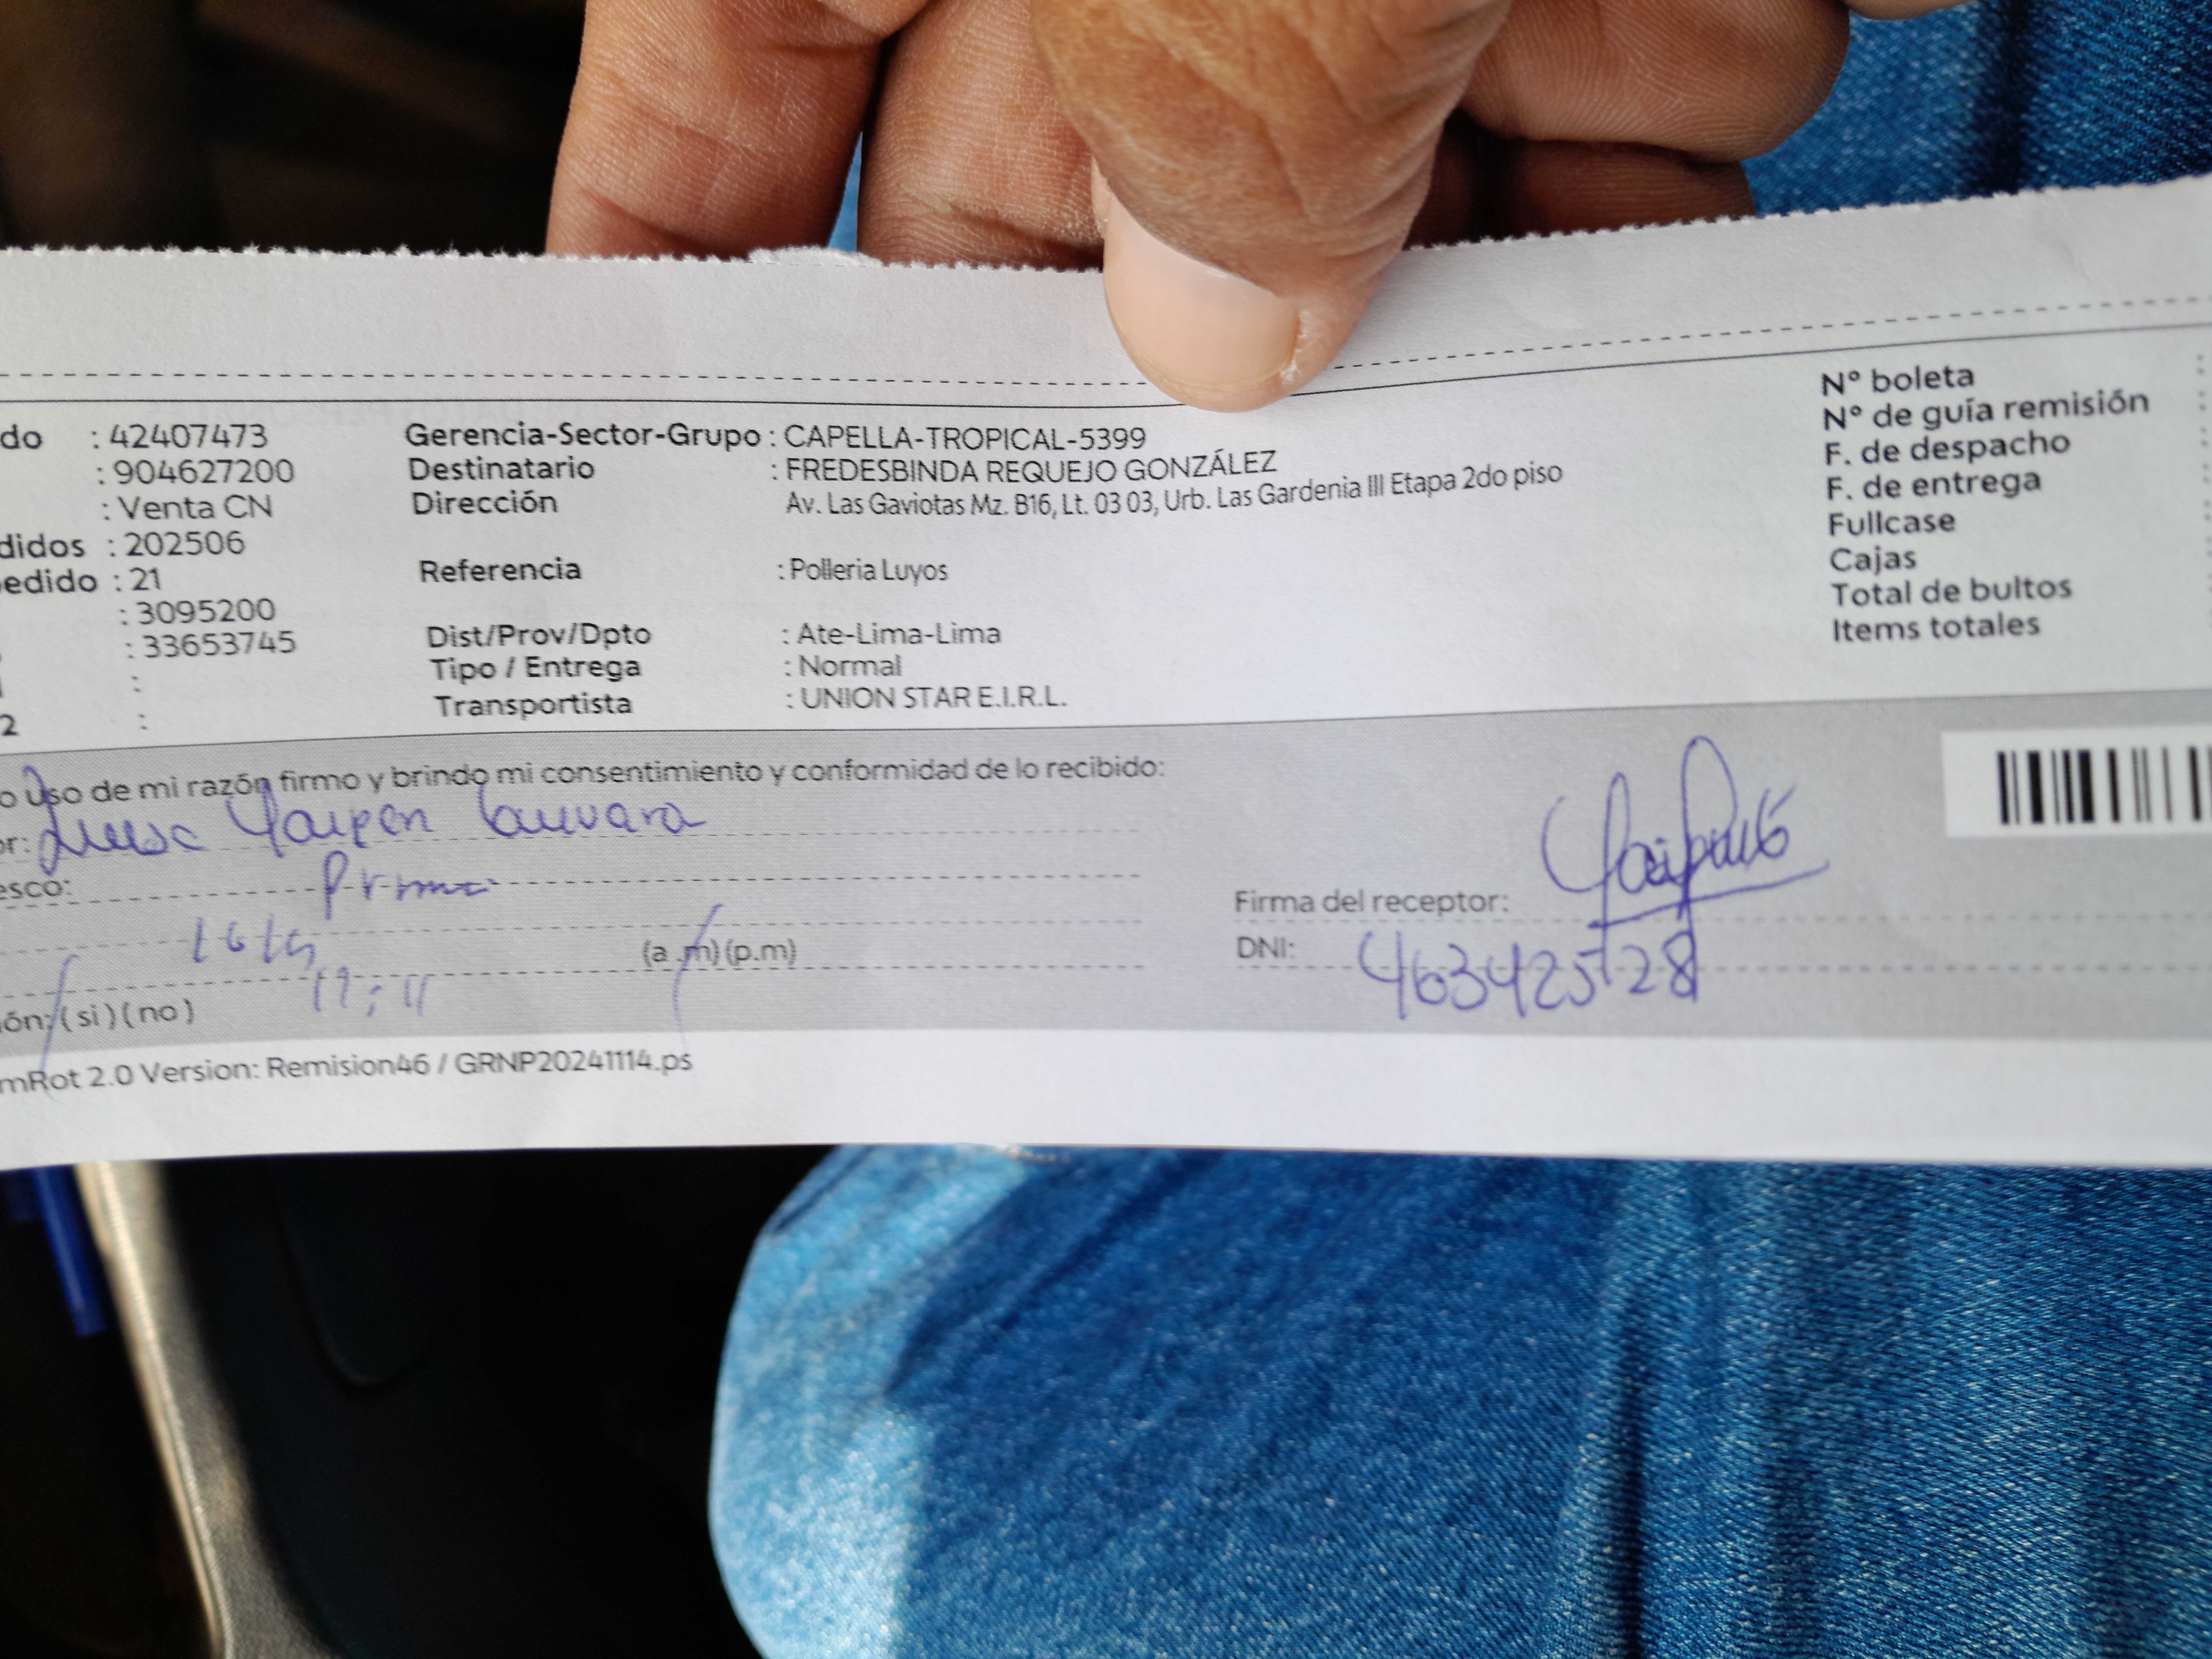 do : 42407473
: 904627200
: Venta CN
didos : 202506
edido : 21
: 3095200
: 33653745
:
2 :
Gerencia-Sector-Grupo : CAPELLA-TROPICAL-5399
Destinatario : FREDESBINDA REQUEJO GONZÁLEZ
Dirección Av. Las Gaviotas Mz. B16, Lt. 03 03, Urb. Las Gardenia III Etapa 2do piso
Referencia : Polleria Luyos
Dist/Prov/Dpto : Ate-Lima-Lima
Tipo / Entrega : Normal
Transportista : UNION STAR E.I.R.L.
N° boleta :
N° de guía remisión :
F. de despacho
F. de entrega
Fullcase
Cajas
Total de bultos
Items totales
o uso de mi razón firmo y brindo mi consentimiento y conformidad de lo recibido:
or: Yaipen
esco: Prima
(a.m) (p.m)
17:11
ón: (si) (no)
Firma del receptor:
DNI: 46342528
mRot 2.0 Version: Remision46 / GRNP20241114.ps